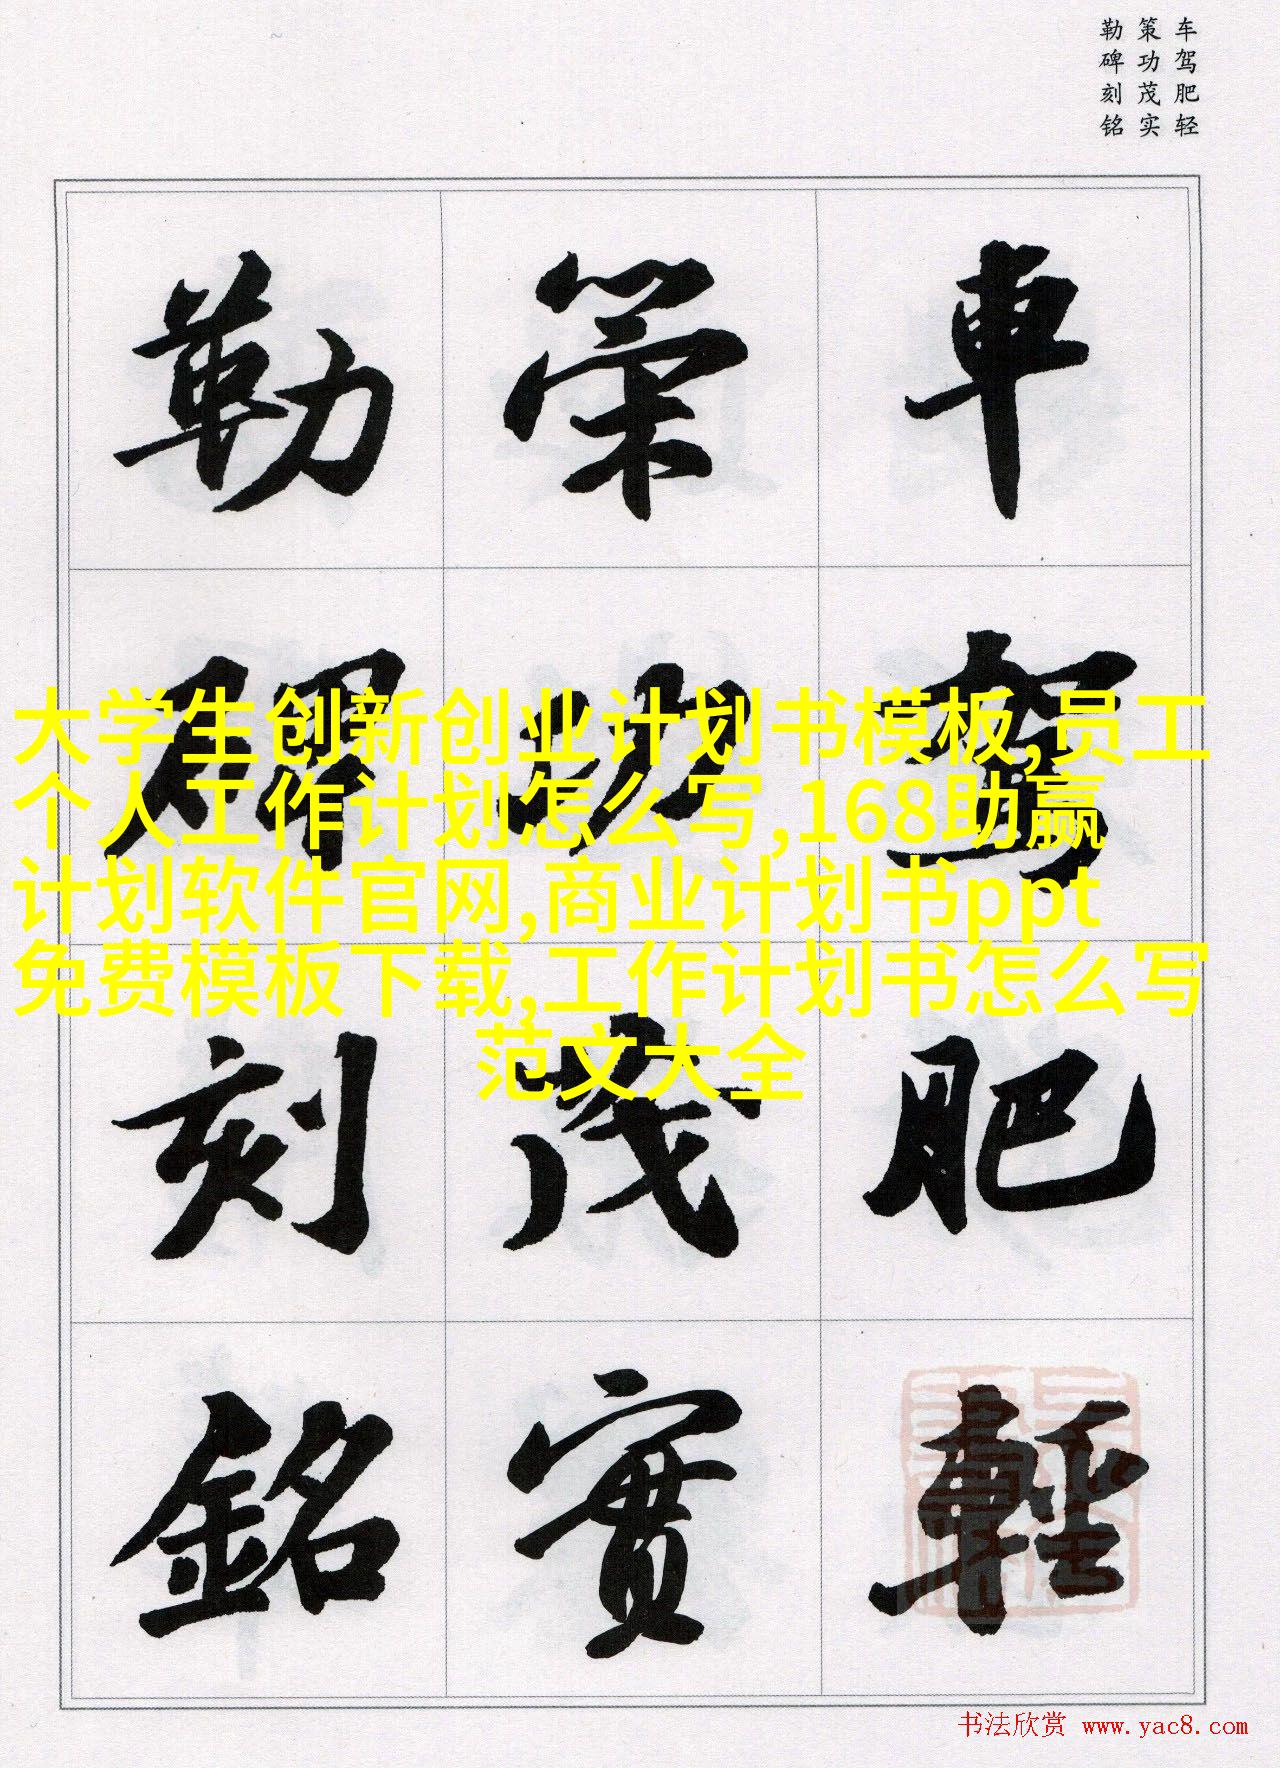 车驾肥轻
策功茂实
勒碑刻铭
車駕肥輕
策功茂實
勒碑刻銘
大学生创新创业计划书模板,员工
个人工作计划怎么写,168助赢
计划软件官网,商业计划书ppt
免费模板下载,工作计划书怎么写
范文大全
书法欣赏 www.yac8.com